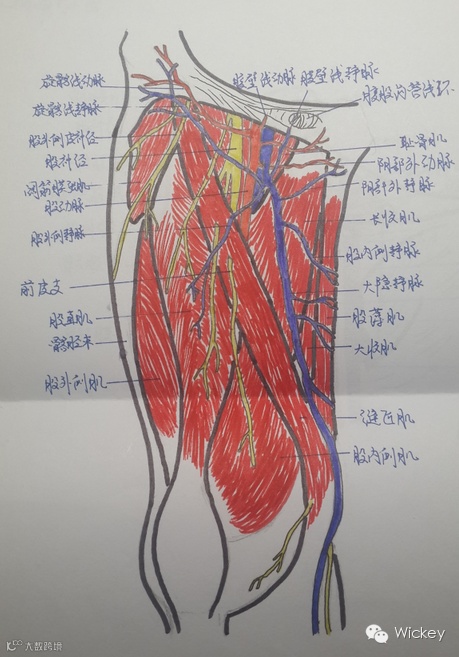 旋髂浅动脉
旋髂浅静脉
股外侧皮神经
股神经
阔筋膜张肌
股动脉
股外侧静脉
前皮支
股直肌
髂胫束
股外侧肌
腹壁浅动脉
腹壁浅静脉
腹股沟管浅环
耻骨肌
阴部外动脉
阴部外静脉
长收肌
股内侧静脉
大隐静脉
股薄肌
大收肌
缝匠肌
股内侧肌
大数跨境
Wickey